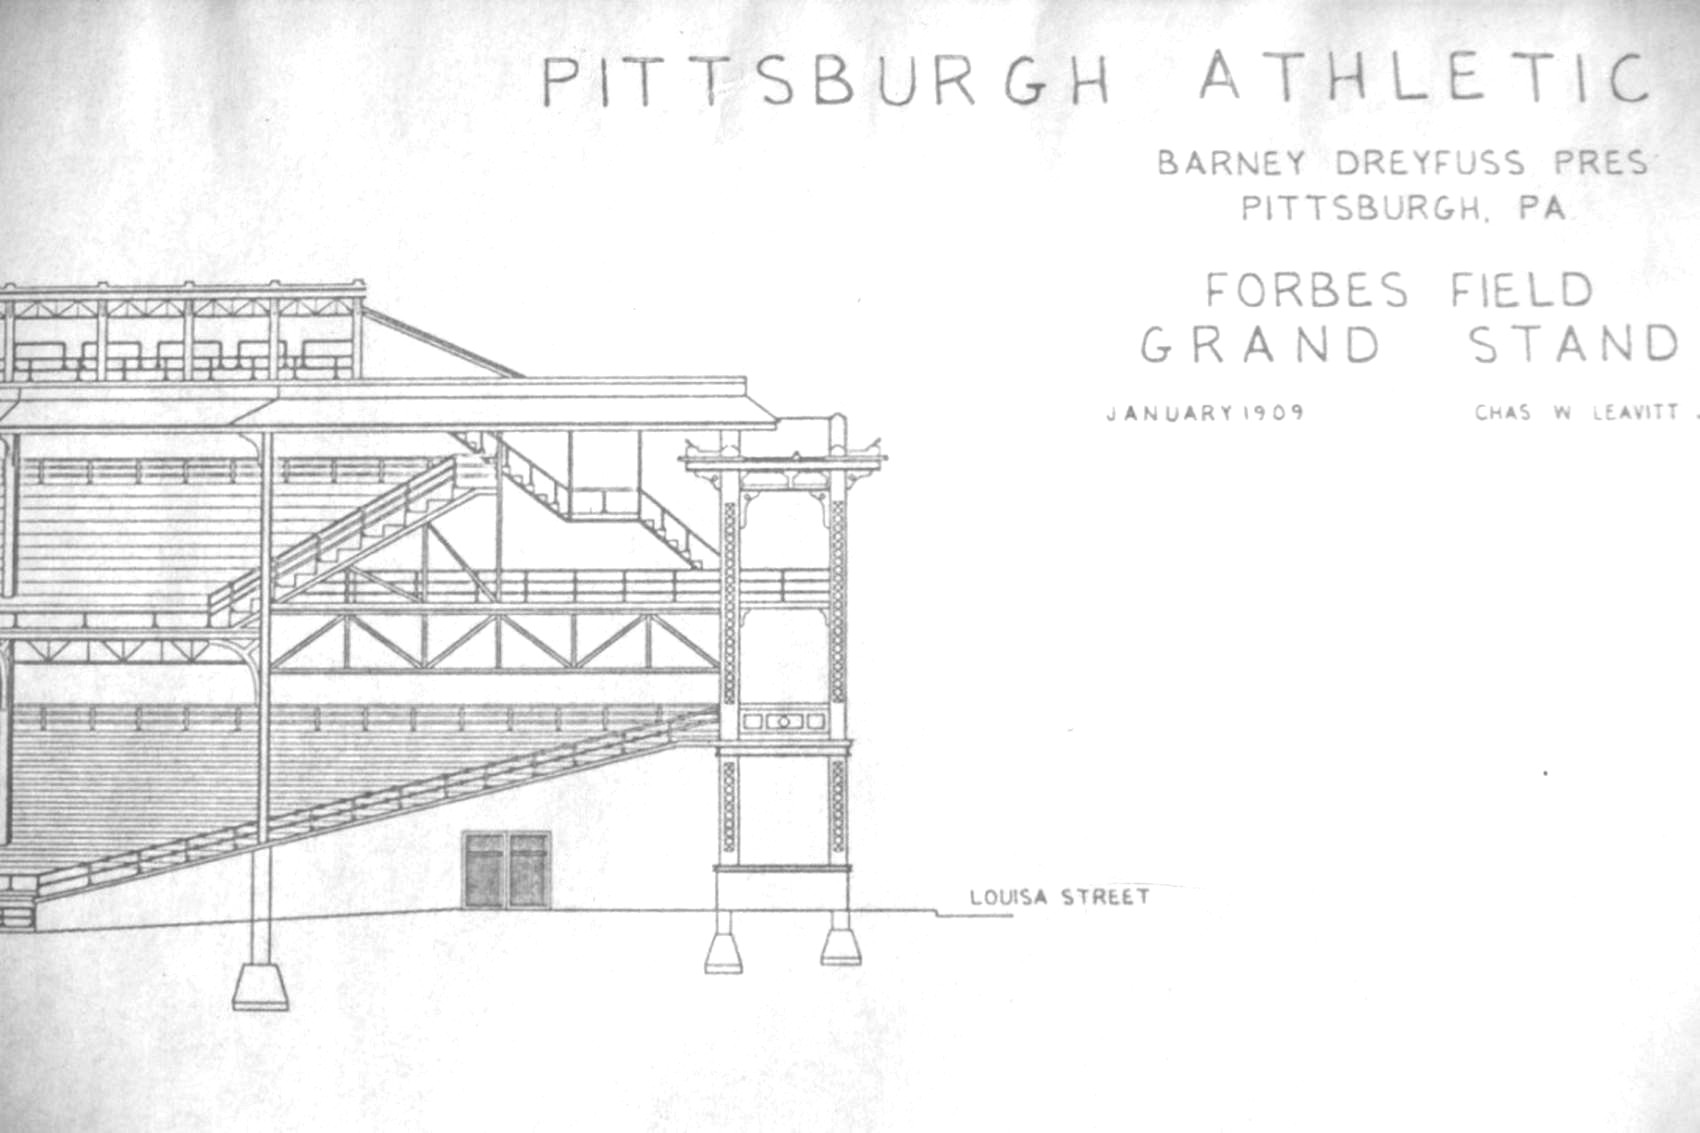 PITTSBURGH ATHLETIC
BARNEY DREYFUSS PRES
PITTSBURGH, PA
FORBES FIELD
GRAND STAND
JANUARY 1909 CHAS W LEAVITT
LOUISA STREET